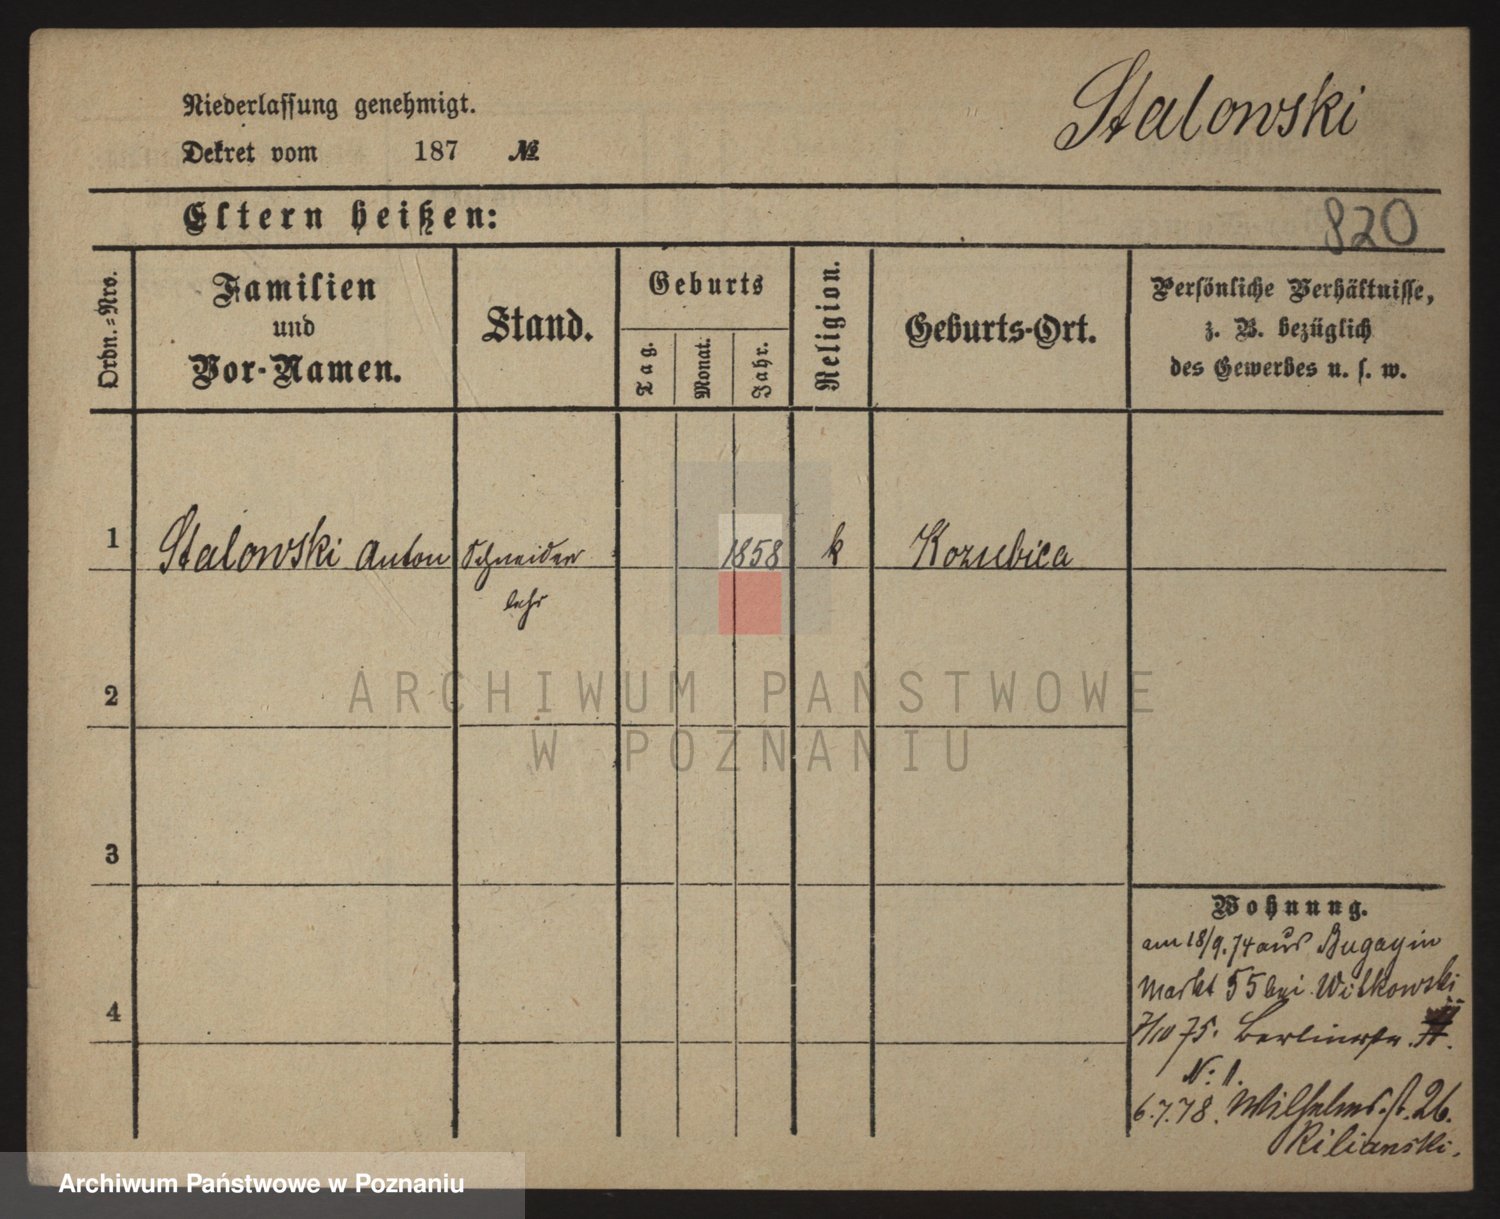 Niederlassung genehmigt.
Dekret vom 187 №
Stalowski
Eltern heißen:
820
Ordn.-Nro.
Familien
und
Vor-Namen.
Stand.
Geburts
Tag.
Monat.
Jahr.
Religion.
Geburts-Ort.
Persönliche Verhältnisse,
z. B. bezüglich
des Gewerbes u. s. w.
1 Stalowski Anton Schneider 1858 k Kozubica
lehr
2
3
4
Wohnung.
am 18/9.74 aus Bugay in
Markt 55 bei Witkowski
7/10 75. Berlinerstr.
N: 1.
6.7.78. Wilhelms.str. 26.
Kilianski.
ARCHIWUM PAŃSTWOWE
W POZNANIU
Archiwum Państwowe w Poznaniu